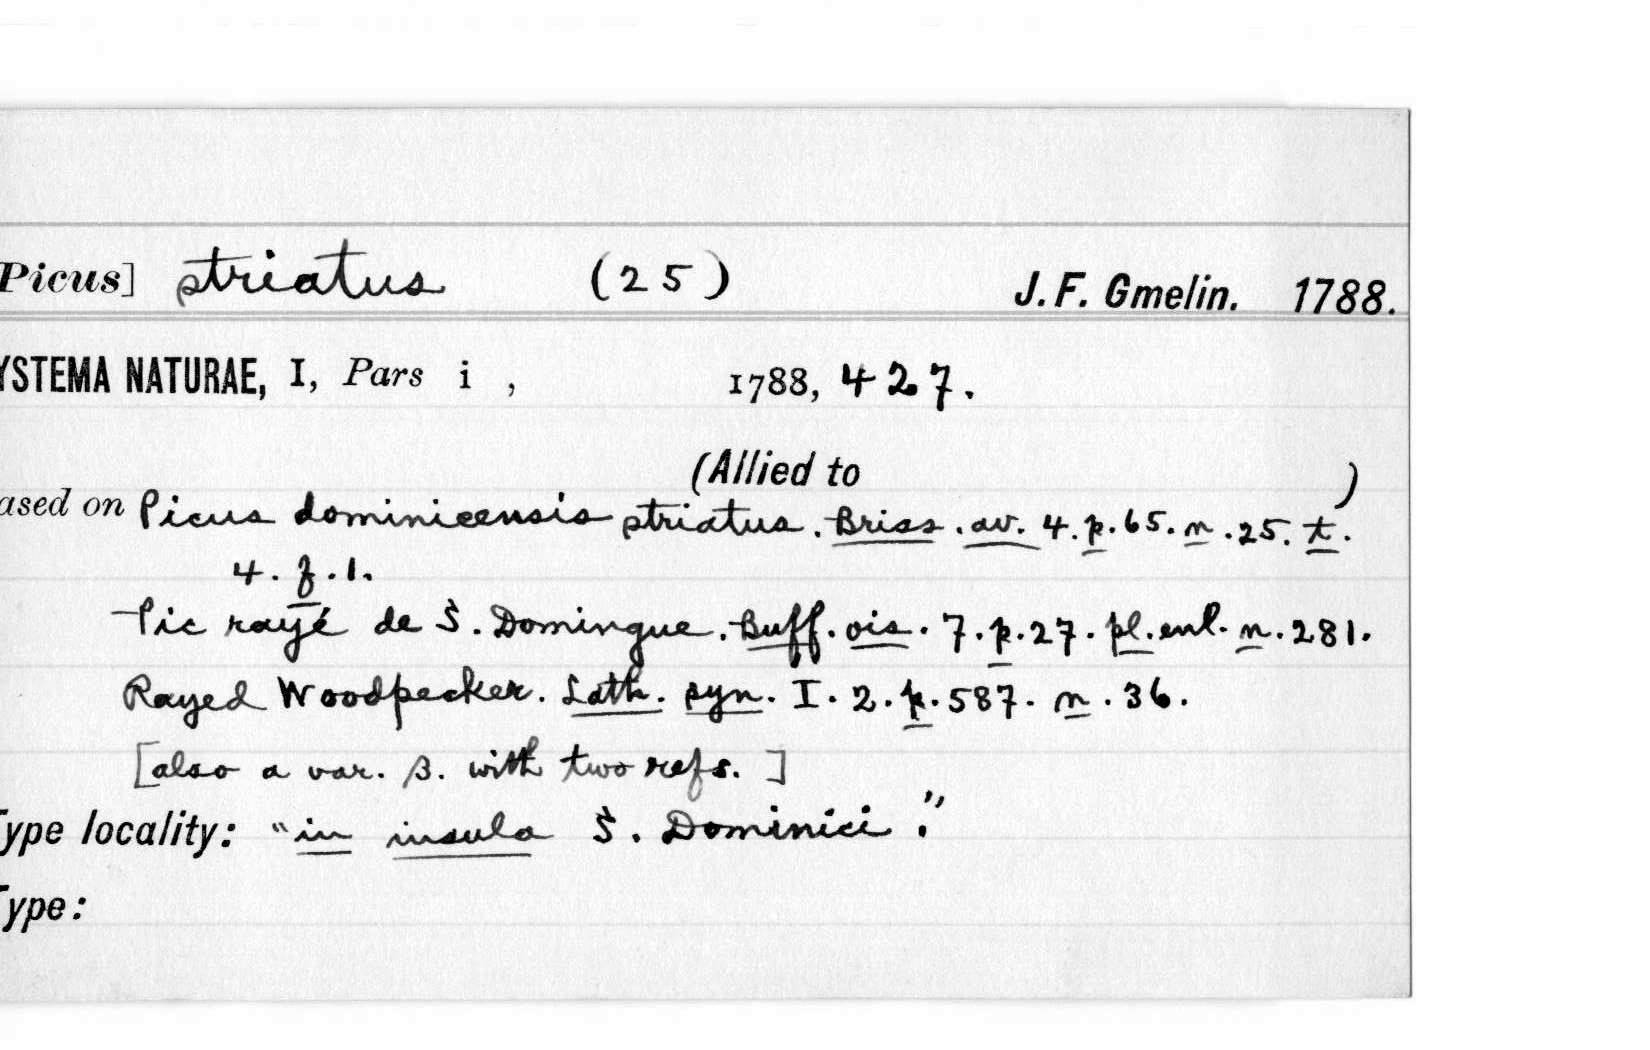 Picus] striatus (25) J. F. Gmelin. 1788.
YSTEMA NATURAE, I, Pars i , 1788, 427.
(Allied to )
ased on Picus dominicensis striatus. Briss. av. 4. p. 65. n. 25. t.
4. f. 1.
Pic rayé de S. Domingue. Buff. ois. 7. p. 27. pl. enl. n. 281.
Rayed Woodpecker. Lath. syn. I. 2. p. 587. n. 36.
[also a var. β. with two refs. ]
Type locality: "in insula S. Dominici."
Type: